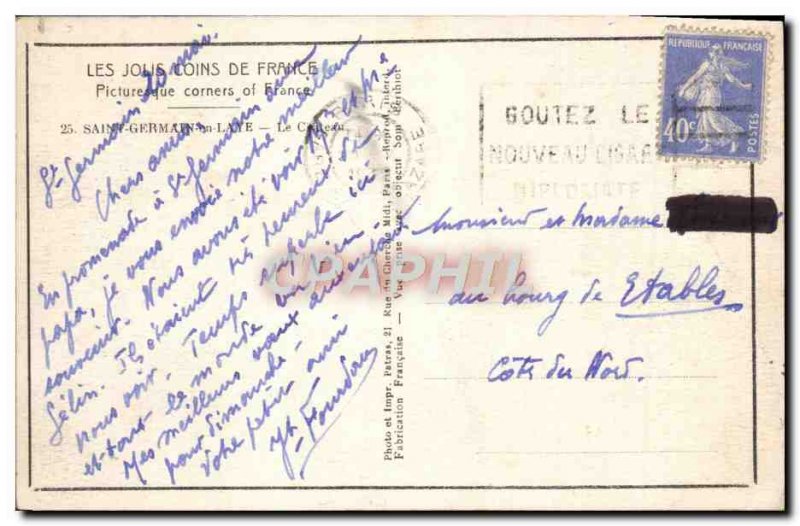 LES JOLIS COINS DE FRANCE
Picturesque corners of France
25. SAINT-GERMAIN-en-LAYE — Le Château
St Germain 20 mai.
Chers amis
En promenade à St Germain avec
papa, je vous envoie notre meilleur
souvenir. Nous avons été voir Mr et Me
Gélin. Ils étaient très heureux de
nous voir. Temps superbe ici
et tout le monde va bien.
Mes meilleurs vœux
pour Dimanche -
Votre petit ami
Photo et Impr. Patras, 21 Rue du Cherche Midi, Paris - Reprod. interd.
Fabrication Française - Vue prise avec objectif Som Berthiot
GOUTEZ LE
NOUVEAU CIGARE
DIPLOMATE
REPUBLIQUE FRANÇAISE
40c
POSTES
Monsieur et Madame
au bourg de Etables
Côte du Nord.
CPAPHIL